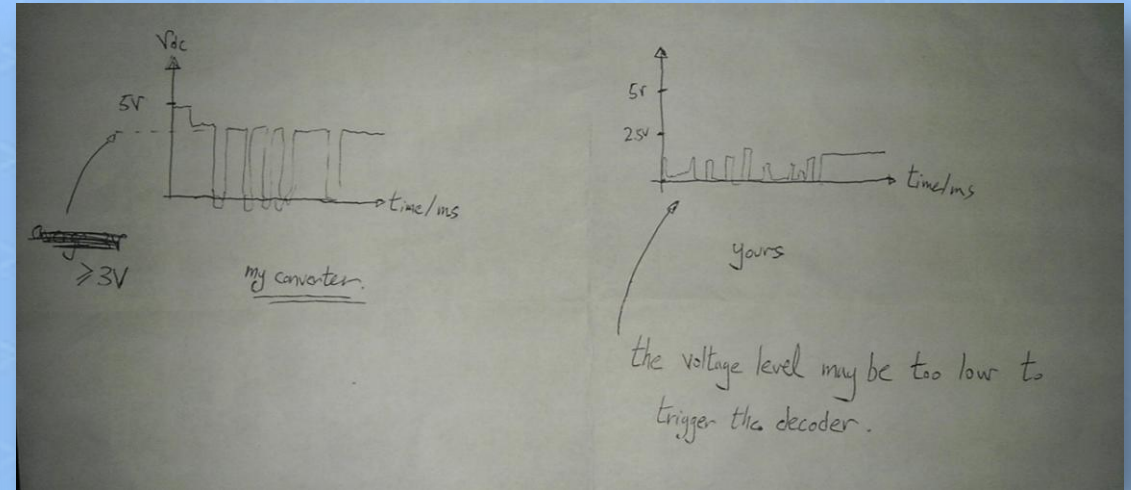 Vdc
5V
time/ms
≥3V
my converter.
5V
2.5V
time/ms
yours
the voltage level may be too low to
trigger the decoder.